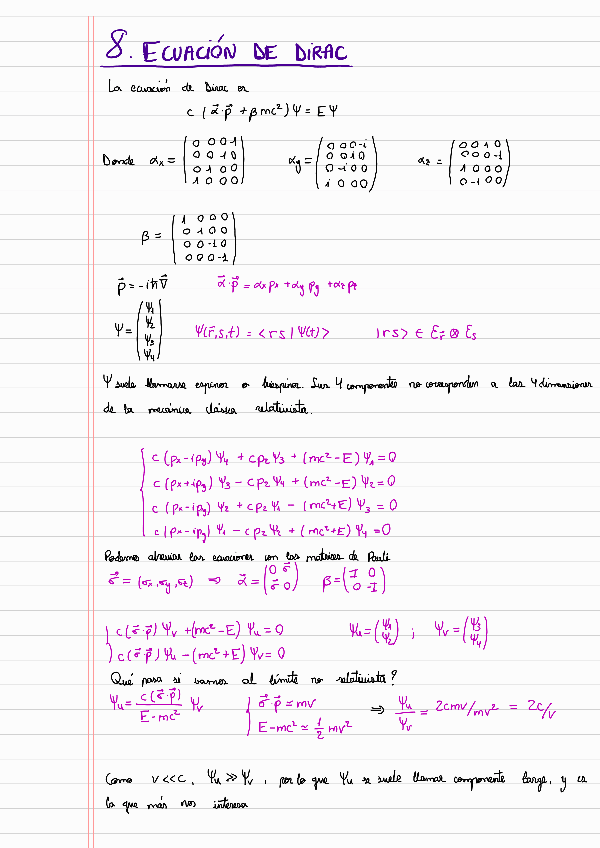 8. ECUACIÓN DE DIRAC
La ecuación de Dirac es
c (α⃗·p⃗ + βmc²)Ψ = EΨ
Donde αx = (0 0 0 1 / 0 0 1 0 / 0 1 0 0 / 1 0 0 0) αy = (0 0 0 -i / 0 0 i 0 / 0 -i 0 0 / i 0 0 0) αz = (0 0 1 0 / 0 0 0 -1 / 1 0 0 0 / 0 -1 0 0)
β = (1 0 0 0 / 0 1 0 0 / 0 0 -1 0 / 0 0 0 -1)
p⃗ = -iħ∇⃗ α⃗·p⃗ = αx px + αy py + αz pz
Ψ = (Ψ1 / Ψ2 / Ψ3 / Ψ4) Ψ(r⃗,s,t) = <r s | Ψ(t)> |r s> ∈ Er⃗ ⊗ Es
Ψ suele llamarse espinor o biespinor. Sus 4 componentes no corresponden a las 4 dimensiones
de la mecánica clásica relativista.
c (px - ipy) Ψ4 + c pz Ψ3 + (mc² - E) Ψ1 = 0
c (px + ipy) Ψ3 - c pz Ψ4 + (mc² - E) Ψ2 = 0
c (px - ipy) Ψ2 + c pz Ψ1 - (mc² + E) Ψ3 = 0
c (px - ipy) Ψ1 - c pz Ψ2 + (mc² + E) Ψ4 = 0
Podemos abreviar las ecuaciones con las matrices de Pauli
σ⃗ = (σx, σy, σz) ⇒ α⃗ = (0 σ⃗ / σ⃗ 0) β = (I 0 / 0 -I)
c(σ⃗·p⃗) Ψv + (mc² - E) Ψu = 0 Ψu = (Ψ1 / Ψ2) ; Ψv = (Ψ3 / Ψ4)
c(σ⃗·p⃗) Ψu - (mc² + E) Ψv = 0
Qué pasa si vamos al límite no relativista?
Ψu = c(σ⃗·p⃗) / E - mc² Ψv σ⃗·p⃗ ≃ mv ⇒ Ψu / Ψv = 2cmv/mv² = 2c/v
E - mc² ≃ 1/2 mv²
Como v << c, Ψu >> Ψv, por lo que Ψu se suele llamar componente larga, y es
la que más nos interesa